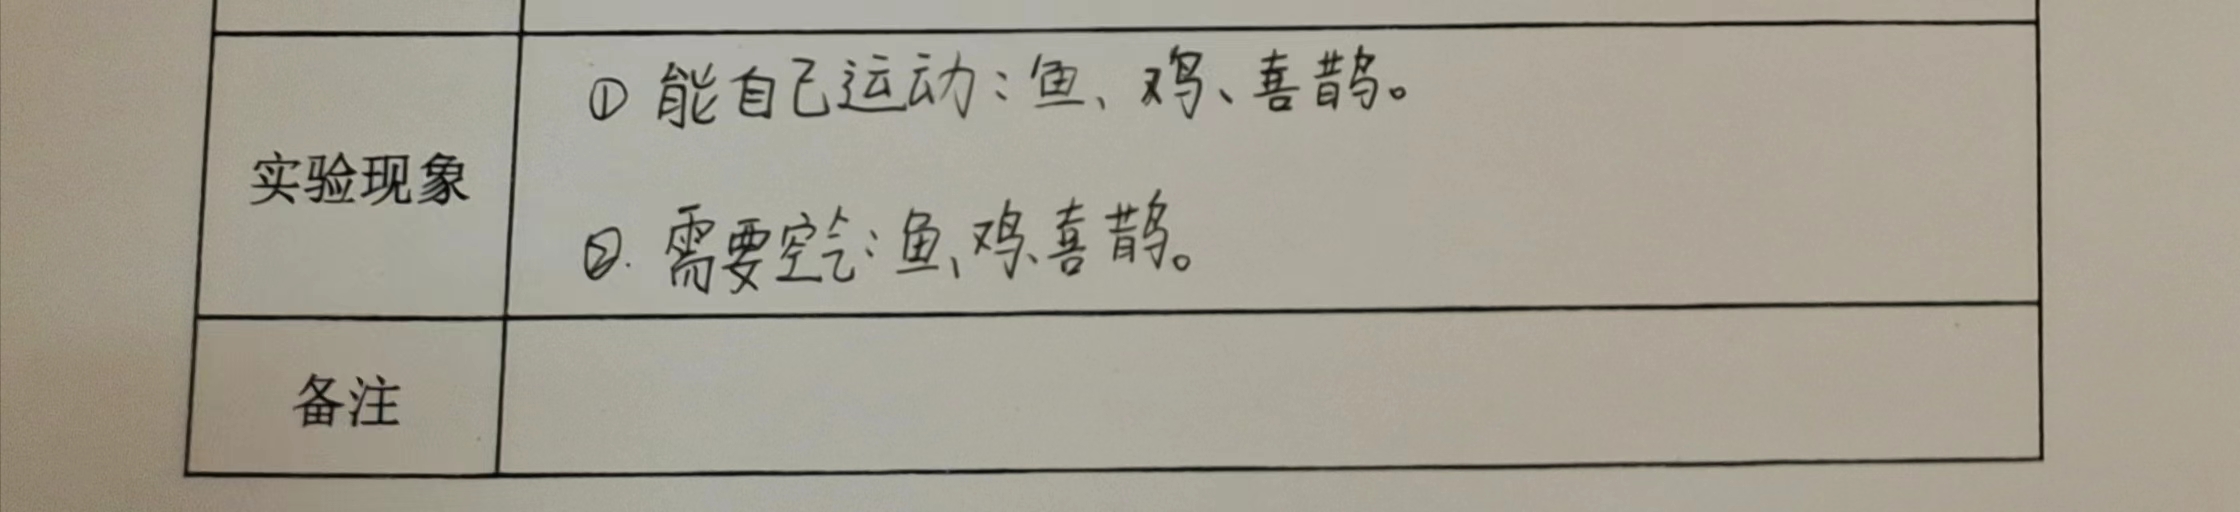 ① 能自己运动：鱼、鸡、喜鹊。
实验现象
②. 需要空气：鱼、鸡、喜鹊。
备注